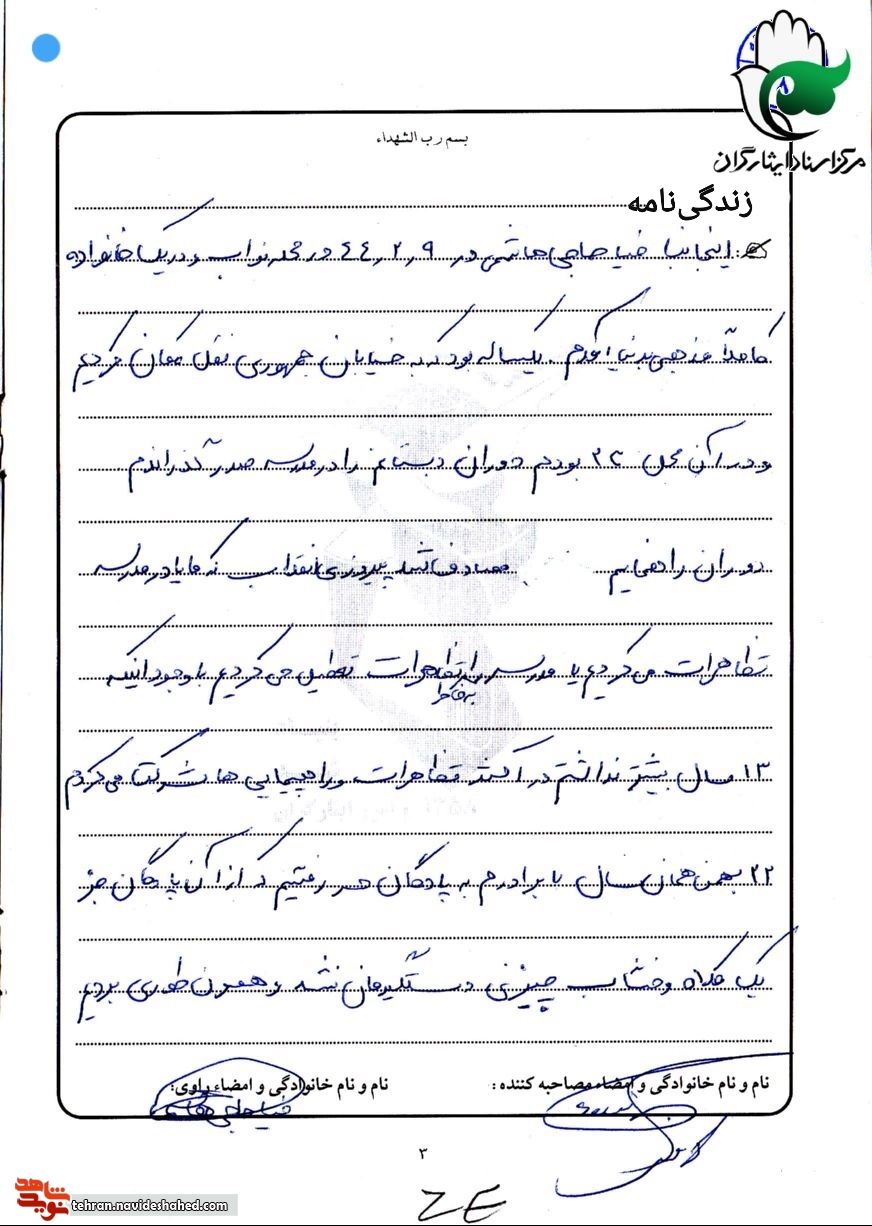 مرکز اسناد ایثارگران
بسم رب الشهداء
زندگی‌نامه
اینجانب ضیا حاجی هاشمی در ۴۴٫۲٫۹ در محله نواب و در یک خانواده
کاملاً مذهبی بدنیا آمدم. یکساله بود که به خیابان جمهوری نقل مکان کردیم
و در آن محل بودم دوران دبستانم را در مدرسه صدر گذراندم
دوران راهنمایم مصادف شد پیروزی انقلاب که ما یا در مدرسه
تظاهرات می کردیم یا مدرسه را به خاطر تظاهرات تعطیل می کردیم با وجود اینکه
۱۳ سال بیشتر نداشتم در اکثر تظاهرات و راهپیمایی ها شرکت می کردم
۲۲ بهمن همان سال با برادرم به پادگان حر رفتیم که از آن پادگان جز
یک کلاه و خشاب چیزی دستگیرمان نشد و همون طوری بردیم
نام و نام خانوادگی و امضاء مصاحبه کننده : نام و نام خانوادگی و امضاء راوی:
ضیا حاجی هاشمی
۳
شاهد
نوید
tehran.navideshahed.com